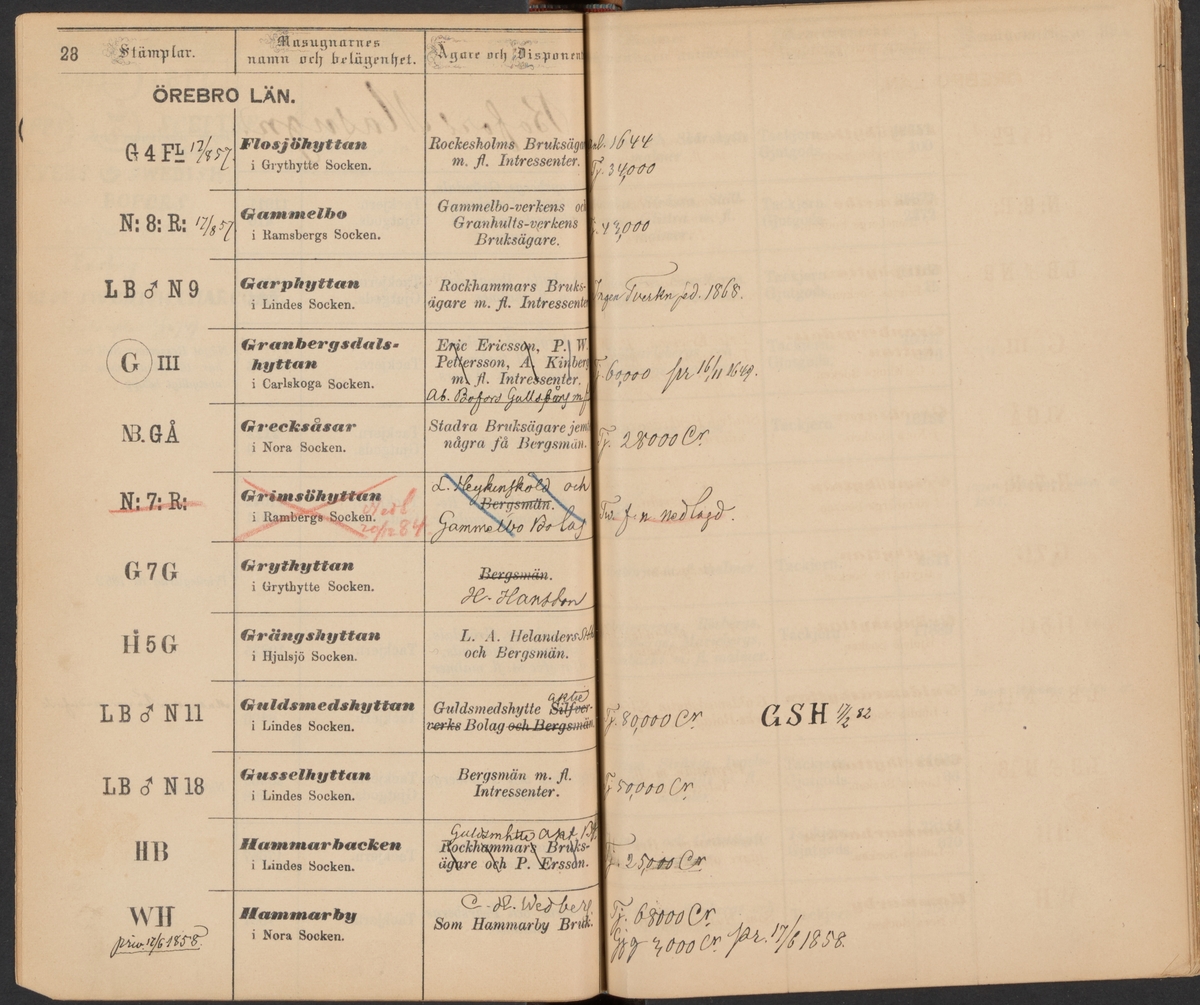 28
Stämplar.
Masugnarnes
namn och belägenhet.
Ägare och Disponent
ÖREBRO LÄN.
G 4 FL 17/8 57.
Flosjöhyttan
i Grythytte Socken.
Rockesholms Bruksäga
m. fl. Intressenter.
1644
Tj. 34,000
N: 8: R: 17/8 57
Gammelbo
i Ramsbergs Socken.
Gammelbo-verkens oc
Granhults-verkens
Bruksägare.
43,000
LB ♂ N 9
Garphyttan
i Lindes Socken.
Rockhammars Bruks-
ägare m. fl. Intressente
Ingen Tverkn sed. 1868.
G III
Granbergsdals-
hyttan
i Carlskoga Socken.
Eric Ericsson, P. W.
Pettersson, A. Kinberg
m. fl. Intressenter.
Ab. Bofors Gullspång
T. 60,000 pr 16/11 1649.
NB. GÅ
Grecksåsar
i Nora Socken.
Stadra Bruksägare jemt
några få Bergsmän.
Tj. 28000 Cr
N: 7: R:
Grimsöhyttan
i Rambergs Socken.
Nedl
20/12 84
L. Heykenskold och
Bergsmän.
Gammelbo Bolag
f. n nedlagd.
G 7 G
Grythyttan
i Grythytte Socken.
Bergsmän.
H. Hansson
H 5 G
Grängshyttan
i Hjulsjö Socken.
L. A. Helanders Stbh
och Bergsmän.
LB ♂ N 11
Guldsmedshyttan
i Lindes Socken.
aktie
Guldsmedshytte Silfver-
verks Bolag och Bergsmän
Tj. 80,000 Cr.
GSH 11/2 82
LB ♂ N 18
Gusselhyttan
i Lindes Socken.
Bergsmän m. fl.
Intressenter.
Tj 50,000 Cr.
HB
Hammarbacken
i Lindes Socken.
Guldsmhtte Akt.
Rockhammars Bruks-
ägare och P. Ersson.
Tj. 25,000 Cr.
WH
priv. 17/6 1858.
Hammarby
i Nora Socken.
C. H. Wedberg.
Som Hammarby Bruk.
Tj. 68000 Cr.
Gjg 3,000 Cr. pr. 17/6 1858.